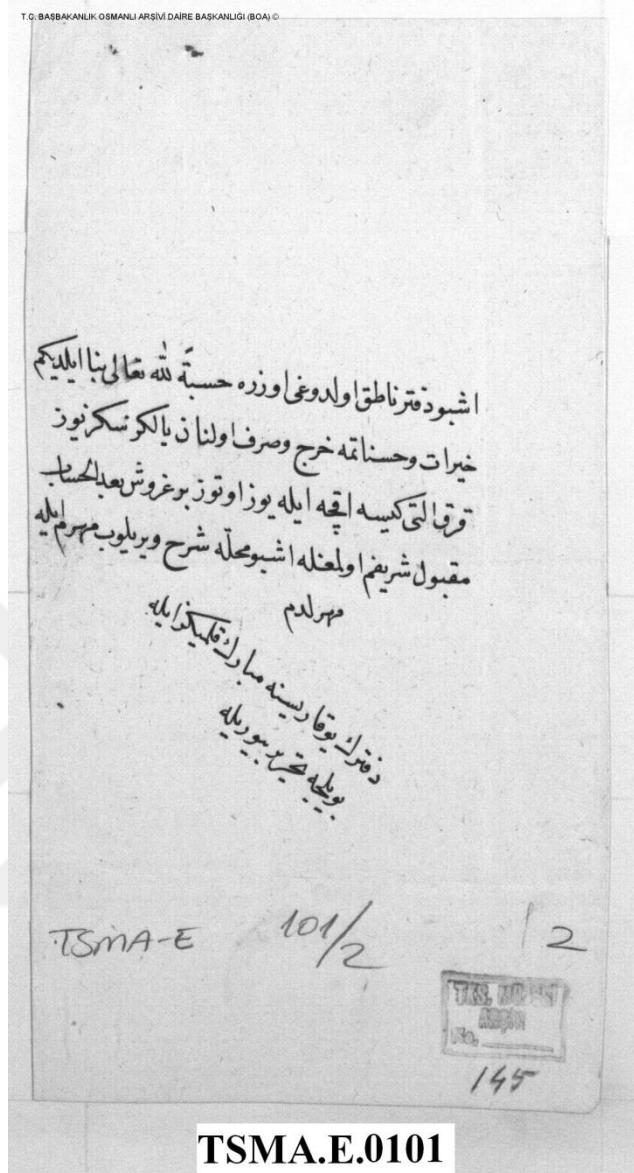 T.C. BAŞBAKANLIK OSMANLI ARŞİVİ DAİRE BAŞKANLIĞI (BOA) ©
اشبو دفتر ناطق اولدوغی اوزره حسبةً لله تعالی بنا ایلدیکم
خیرات و حسناتمه خرج و صرف اولنان یالکز سکز یوز
قرق التی کیسه اقچه ایله یوز اوتوز بر غروش بعد الحساب
مقبول شریفم اولمغله اشبو محلّه شرح ویریلوب مهرم ایله
مهرلدم
دفترك یوقاریسنه مبارك قلمیکز ایله
بویله تحریر بیوریله
TSMA-E 101/2 / 2
TKS.
ARŞİVİ
No.
145
TSMA.E.0101